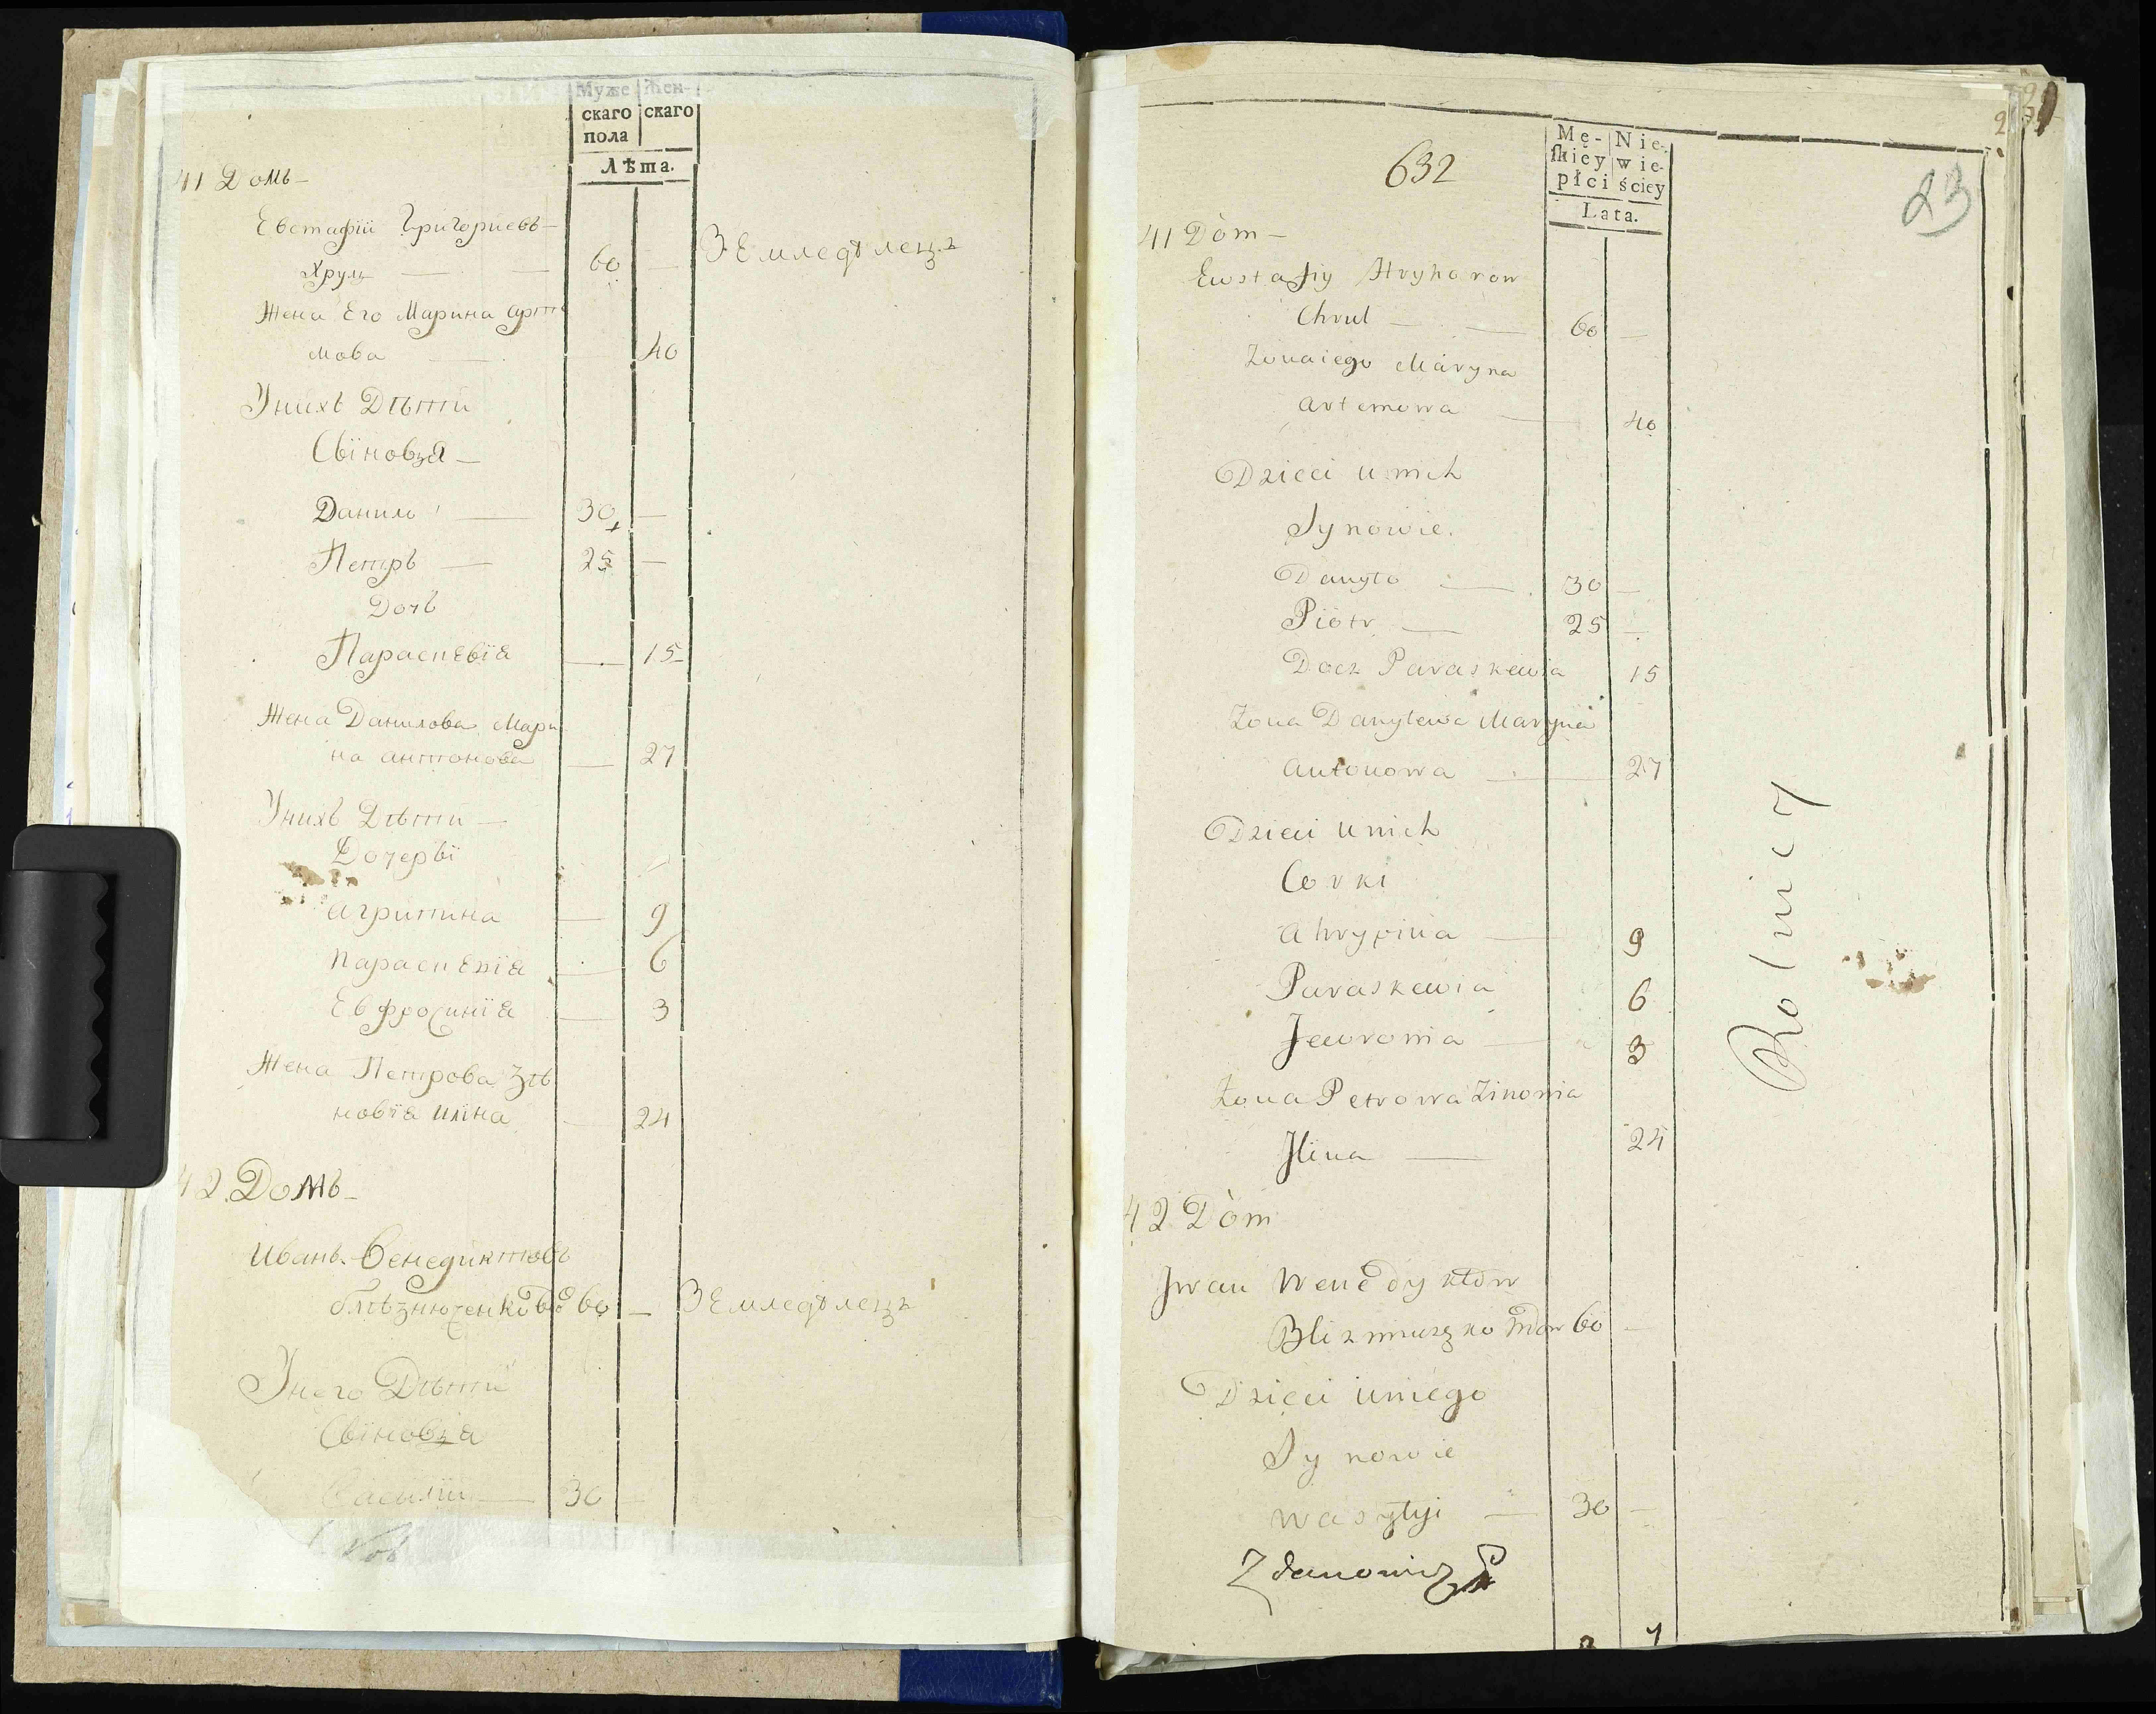 Муже Жен-
скаго скаго
пола
Лѣта.
41 Домъ –
Евстафіи Григориевъ –
Хрулъ — — 60 — Землѣделецъ
Жена Его Марина арте
мова — 40
Унихъ Дѣти
Сыновья –
Данило — 30 —
Петръ — 25 —
Дочь
Параскевїя — 15
Жена Данилова Мари
на антонова — 27
Унихъ Дѣти –
Дочерьї
агрипина — 9
параскевїя — 6
Евфросинїя — 3
Жена Петрова Зѣ
новїя илїна — 24
42 Домъ –
иванъ Венедиктовъ
блѣзнюченковъ 60 — Землѣделецъ
Унего Дѣти
Сыновья
Василїи — 30 —
632
Mę- Nie-
ſkiéy wie-
płci ściey
Lata.
23
41 Dòm –
Ewstafiy Hryhorow
Chrul — — 60 —
Żonaiego Maryna
Artemowa — 40
Dzieci unich
Synowie.
Danyło — 30 —
Piötr — 25 —
Docz Paraskewia 15
Żona Danyłewa Maryna
Antonowa — 27
Dzieci unich
Corki
Ahrypina — 9
Paraskewia 6
Jewronia — 3
Żona Petrowa Zinowia
Jlina — 24
Rolnicy
42 Dòm
Jwan Wenedyktow
Blizniuczko wdow 60 —
Dzieci uniego
Synowie
Wasylyi — 30 —
Zdanowicz